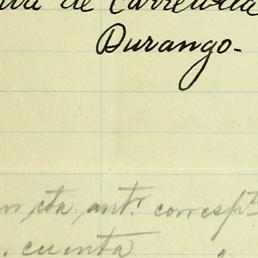 de Carretera
Durango-
cta. ant.ʳ corresp.ᵗᵉ
cuenta